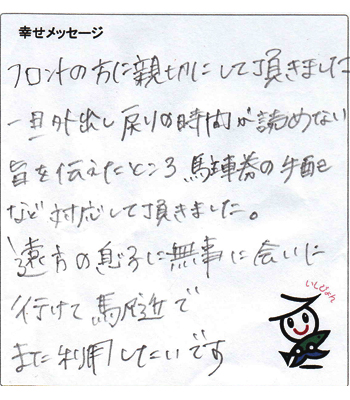 幸せメッセージ
フロントの方に親切にして頂きました
一旦外出し戻りの時間が読めない
旨を伝えたところ駐車券の手配
など対応して頂きました。
遠方の息子に無事に会いに
行けて
また利用したいです
いしぴょん